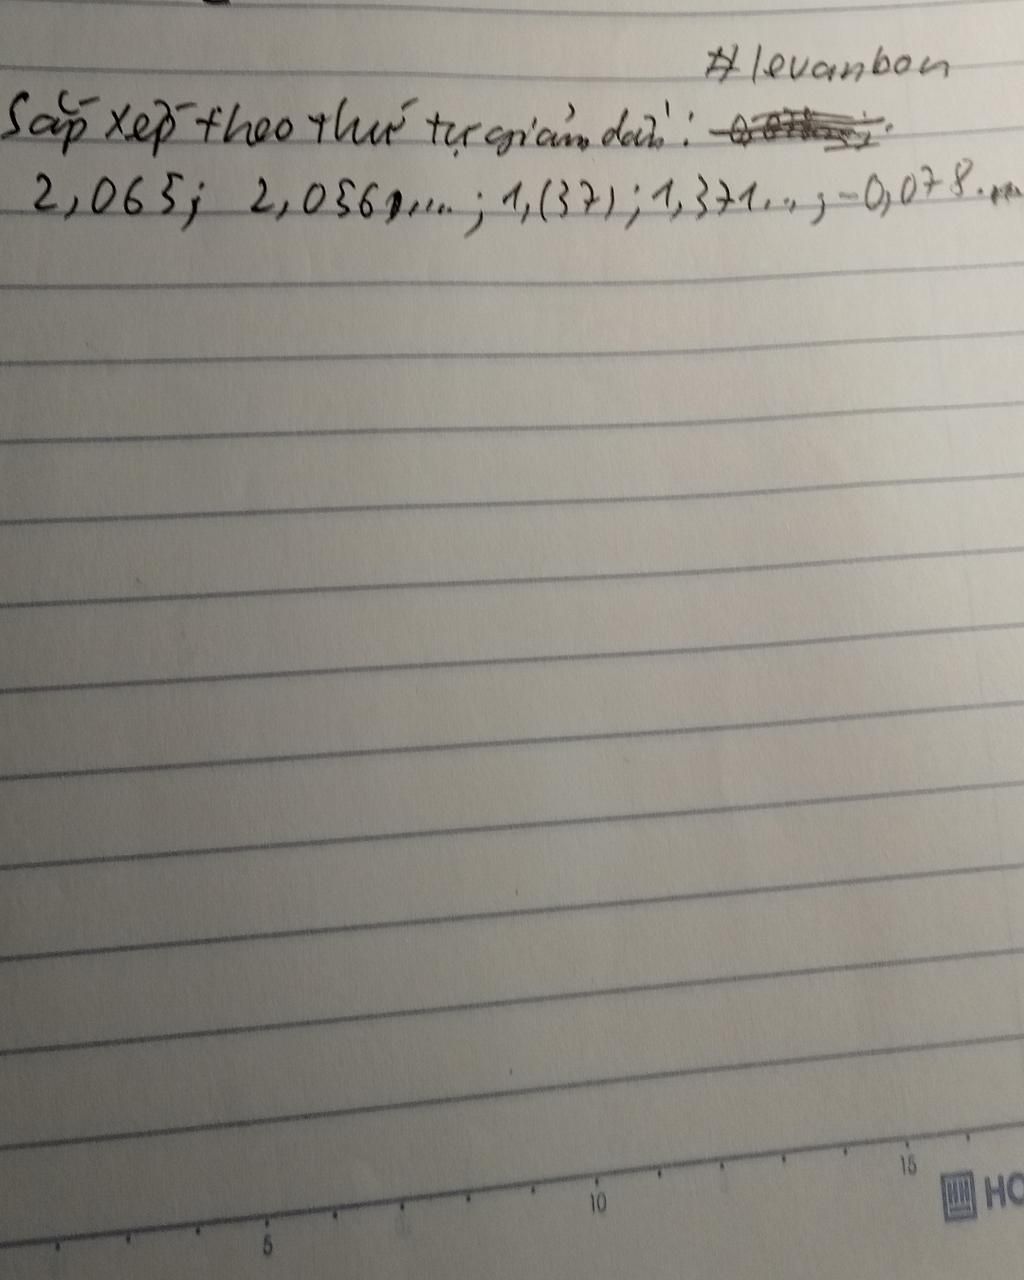 #levanbon
Sắp xếp theo thứ tự giảm dần:
2,065; 2,056....; 1,(37); 1,371...; -0,078...
5 10 15
HO